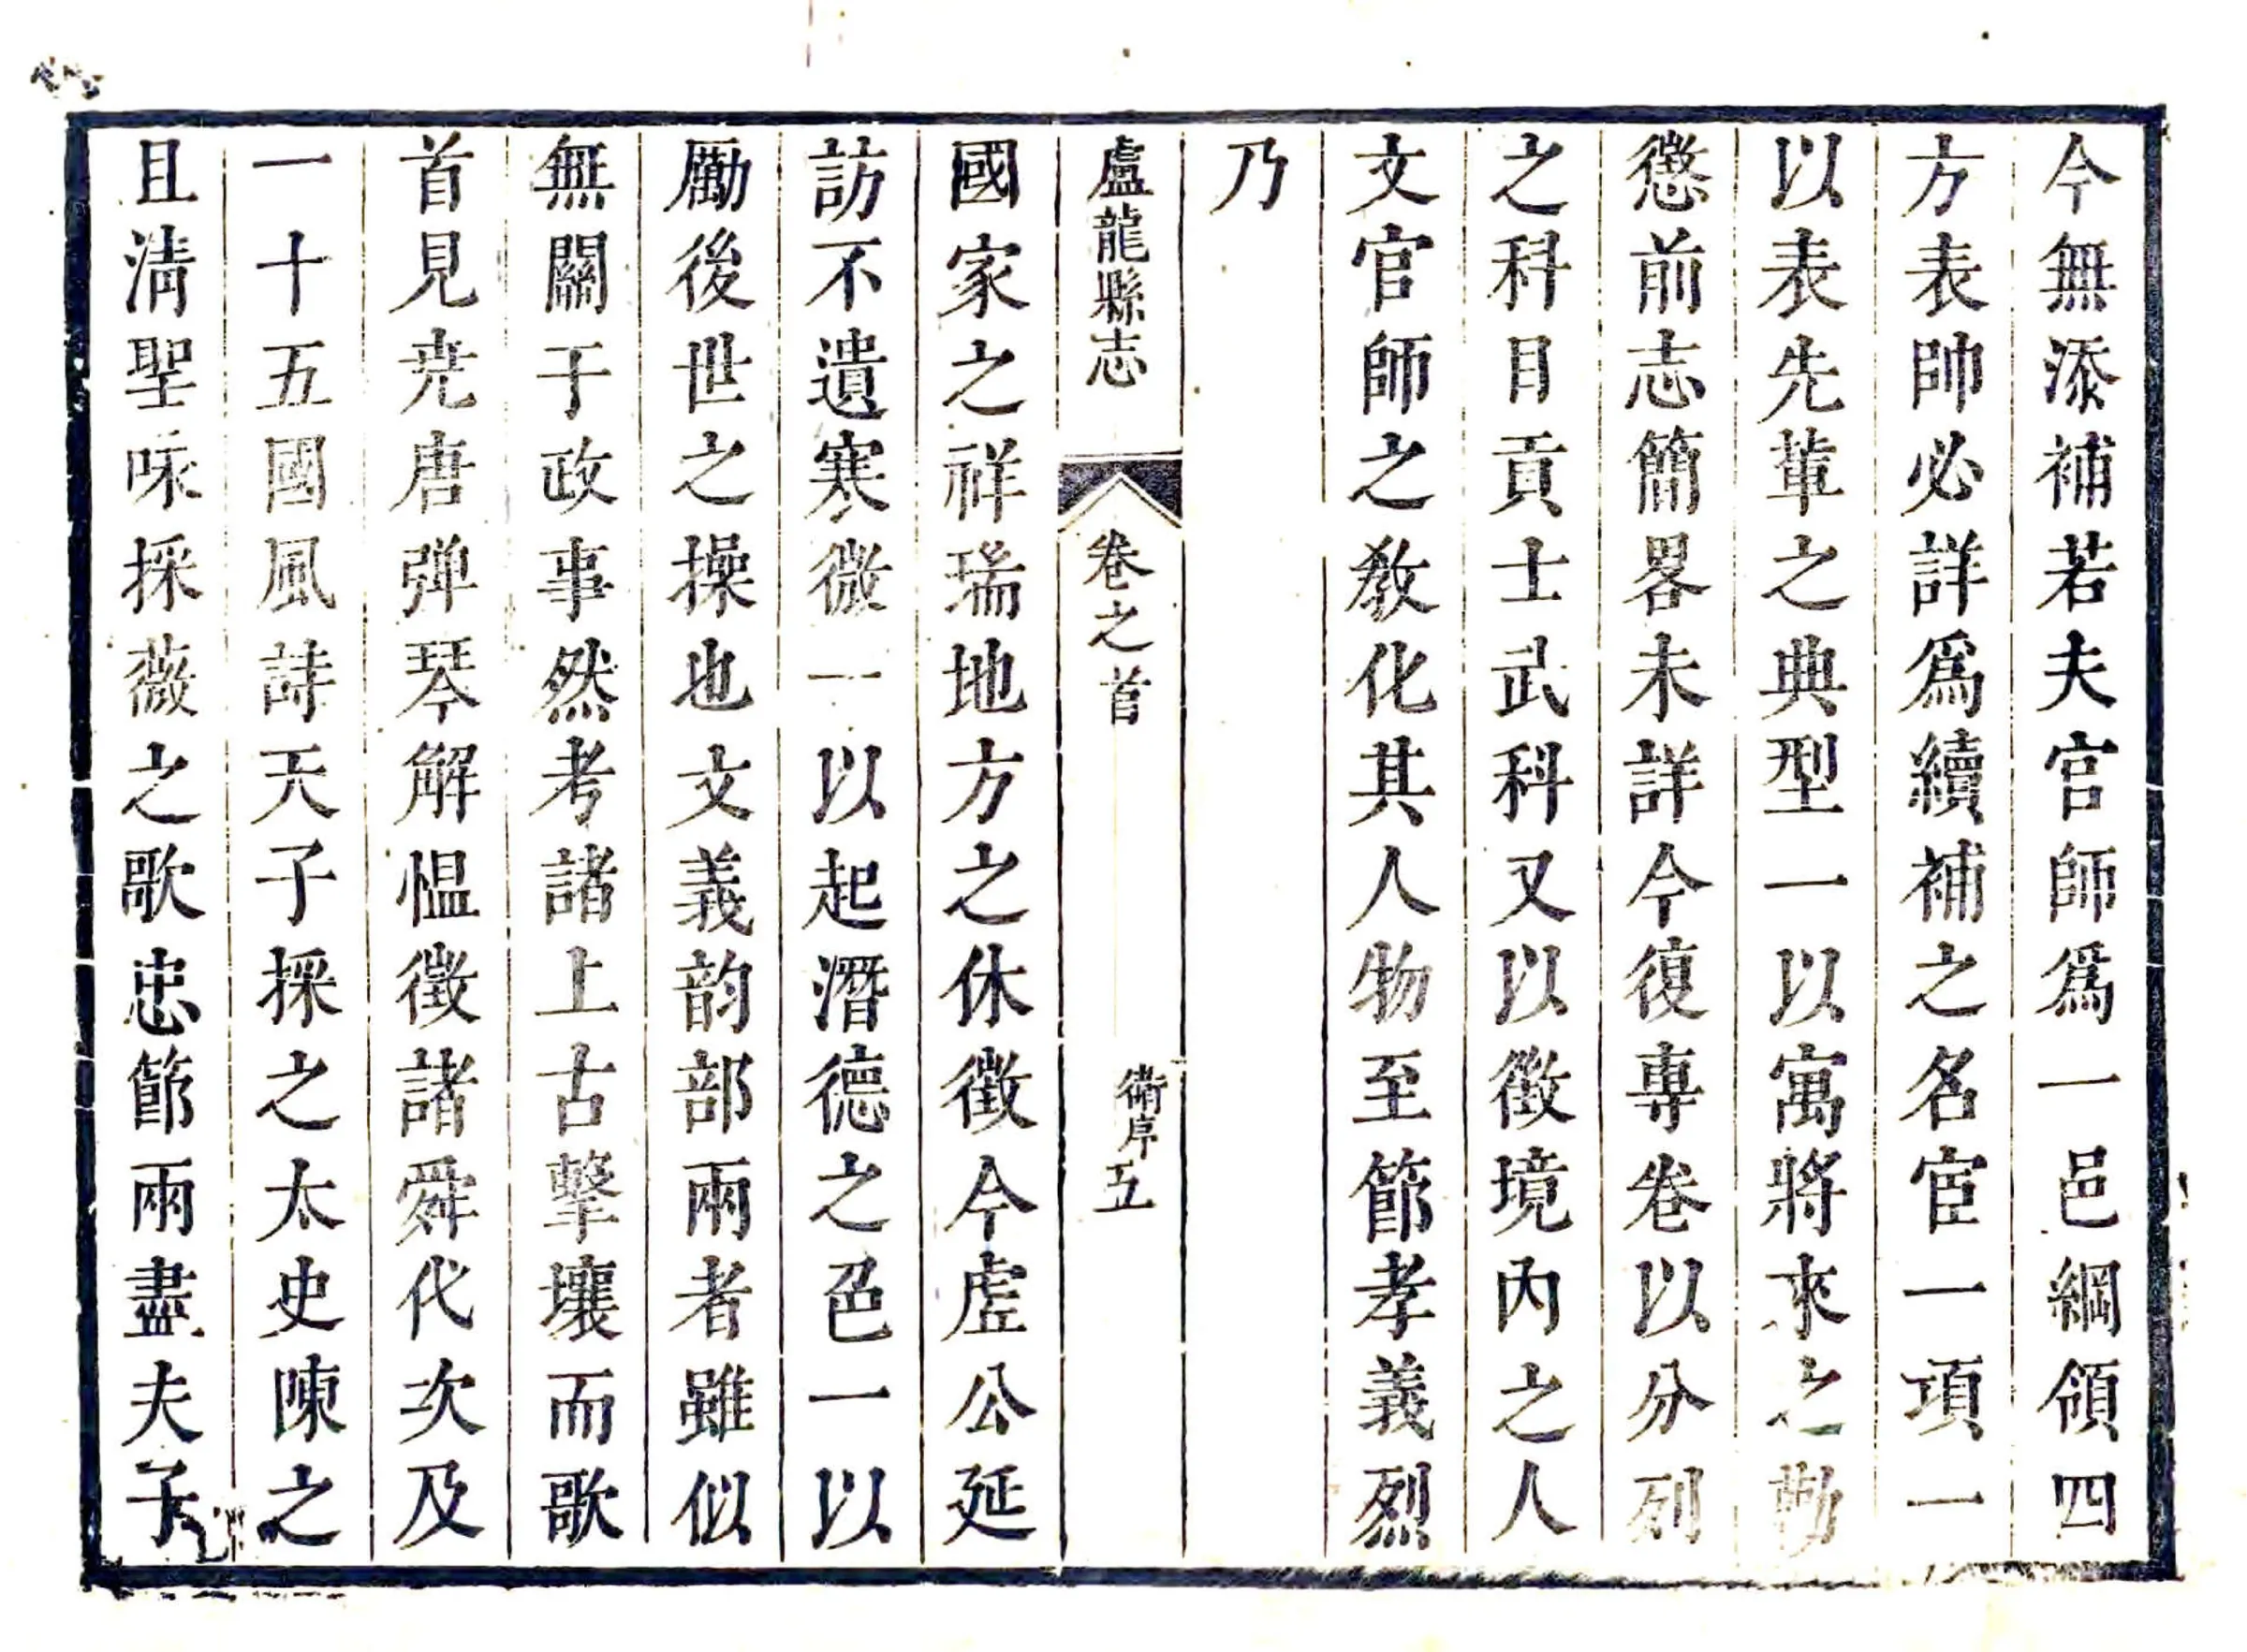 今無添補若夫官師爲一邑綱領四
方表帥必詳爲續補之名宦一項一
以表先軰之典型一以寓將來之勸
懲前志簡畧未詳今復專卷以分列
之科目貢士武科又以徵境內之人
文官師之敎化其人物至節孝義烈
乃
盧龍縣志
卷之首
衛序
五
國家之祥瑞地方之休徵今虗公延
訪不遺寒微一以起潛德之色一以
勵後世之操也文義韵部兩者雖似
無關于政事然考諸上古擊壤而歌
首見尭唐弹琴解慍徵諸舜代次及
一十五國風詩天子採之太史陳之
且淸聖咏採薇之歌忠節兩盡夫子